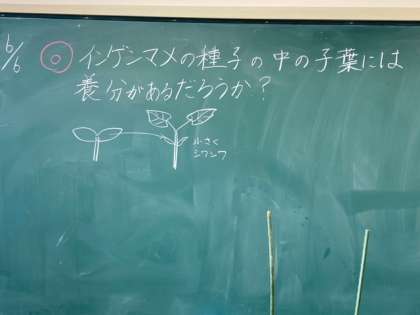 6/6 ◎ インゲンマメの種子の中の子葉には
養分があるだろうか?
小さく
シワシワ